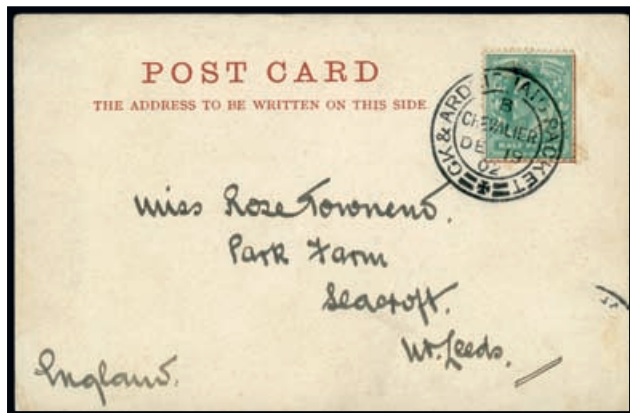 POST CARD
THE ADDRESS TO BE WRITTEN ON THIS SIDE
GK & ARD PACKET
B
CHEVALIER
DE 19
02
Miss Rose Townend.
Park Farm
Seacroft.
Nr. Leeds.
England.